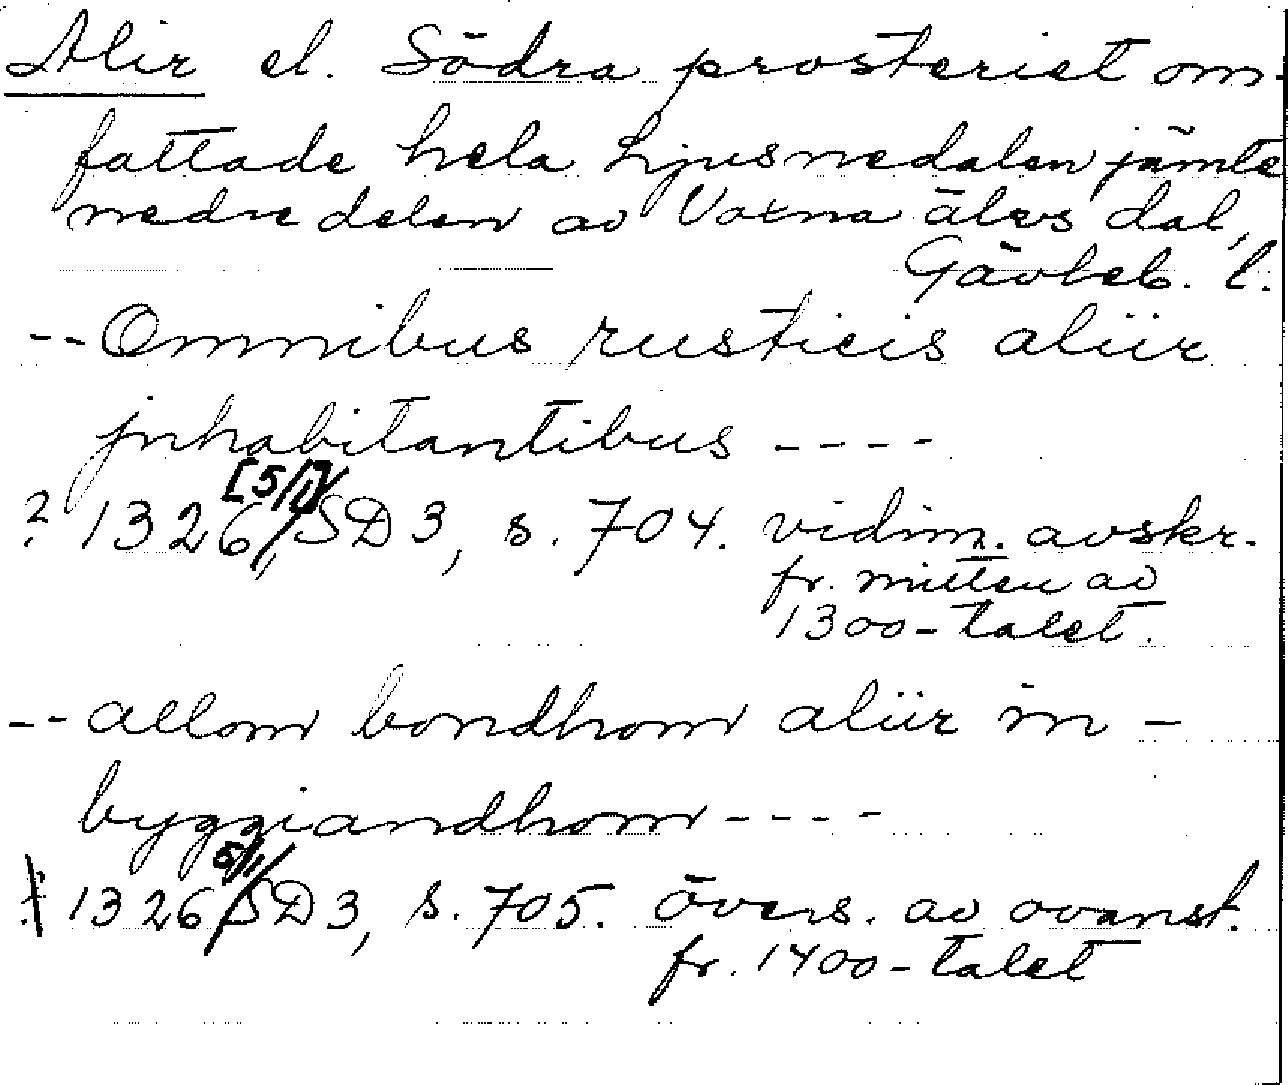 Alir el. Södra prosteriet om-
fattade hela Ljusnedalen jämte
nedre delen av Voxna älvs dal,
Gävleb. l.
-- Omnibus rusticis aliir
jnhabitantibus ----
[5/1]
? 1326, SD 3, s. 704. vidim. avskr.
fr. mitten av
1300-talet.
-- allom bondhom aliir in -
byggiandhom ----
5/1
1326 SD 3, s. 705. övers. av ovanst.
fr. 1400-talet